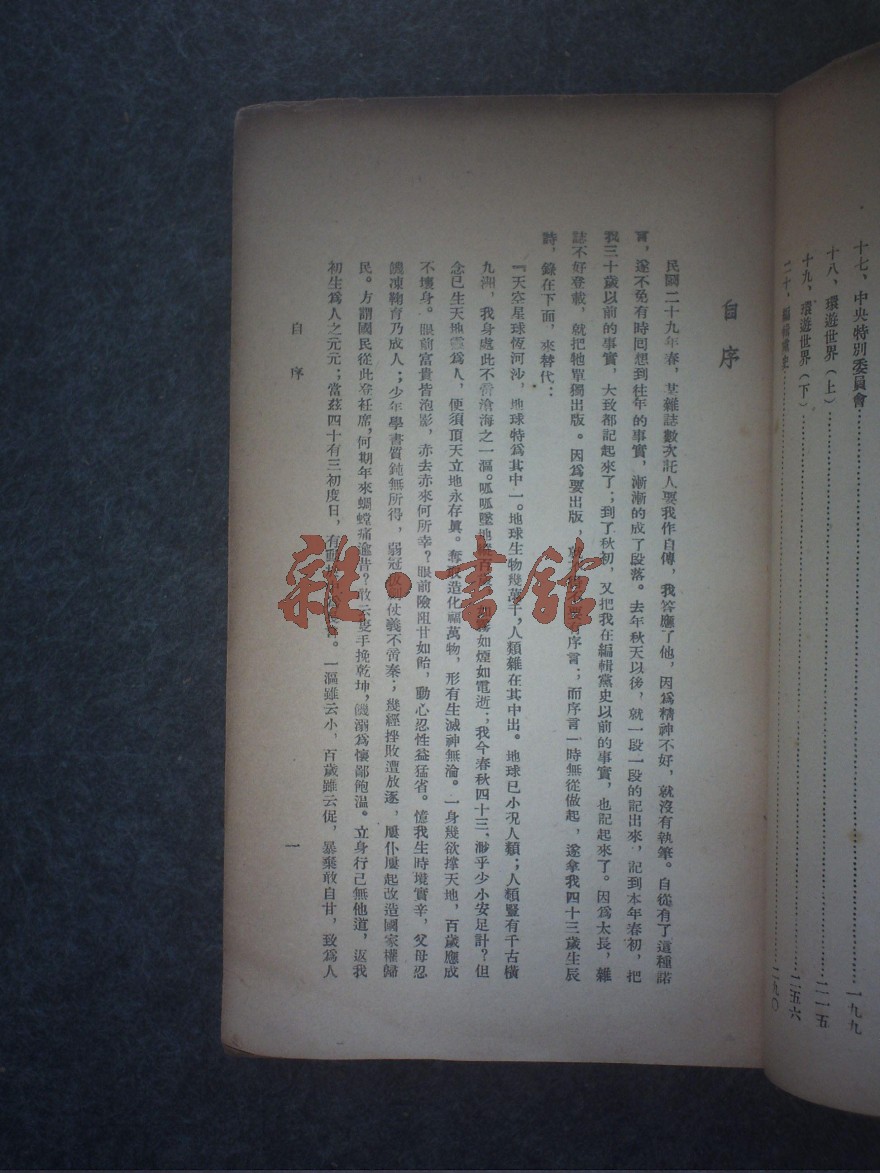 十七、中央特別委員會…………一九九
十八、環遊世界(上)…………二一五
十九、環遊世界(下)…………二五六
二十、編輯黨史…………二九〇
自序
民國二十九年春,某雜誌數次託人要我作自傳,我答應了他,因爲精神不好,就沒有執筆。自從有了這種諾
言,遂不免有時囘想到往年的事實,漸漸的成了段落。去年秋天以後,就一段一段的記出來,記到本年春初,把
我三十歲以前的事實,大致都記起來了;到了秋初,又把我在編輯黨史以前的事實,也記起來了。因爲太長,雜
誌不好登載,就把牠單獨出版。因爲要出版,就 要有序言;而序言一時無從做起,遂拿我四十三歲生辰
詩,錄在下面,來替代:
『天空星球恆河沙,地球特爲其中一。地球生物幾萬千,人類雜在其中出。地球已小况人類;人類豎有千古橫
九洲,我身處此不啻滄海之一漚。呱呱墜地 如霧如煙如電逝;我今春秋四十三,渺乎少小安足計?但
念已生天地靈爲人,便須頂天立地永存眞。奪取造化福萬物,形有生滅神無淪。一身幾欲撑天地,百歲應成
不壞身。眼前富貴皆泡影,赤去赤來何所幸?眼前險阻甘如飴,動心忍性益猛省。憶我生時境實辛,父母忍
饑凍鞠育乃成人;少年學書質鈍無所得,弱冠 仗義不帝秦;幾經挫敗遭放逐,屢仆屢起改造國家權歸
民。方謂國民從此登衽席,何期年來蜩螗痛逾昔?敢云隻手挽乾坤,饑溺爲懷鄙飽温。立身行己無他道,返我
初生爲人之元元;當茲四十有三初度日,有 。一漚雖云小,百歲雖云促,暴棄敢自甘,致爲人
自序
一
雜·書館